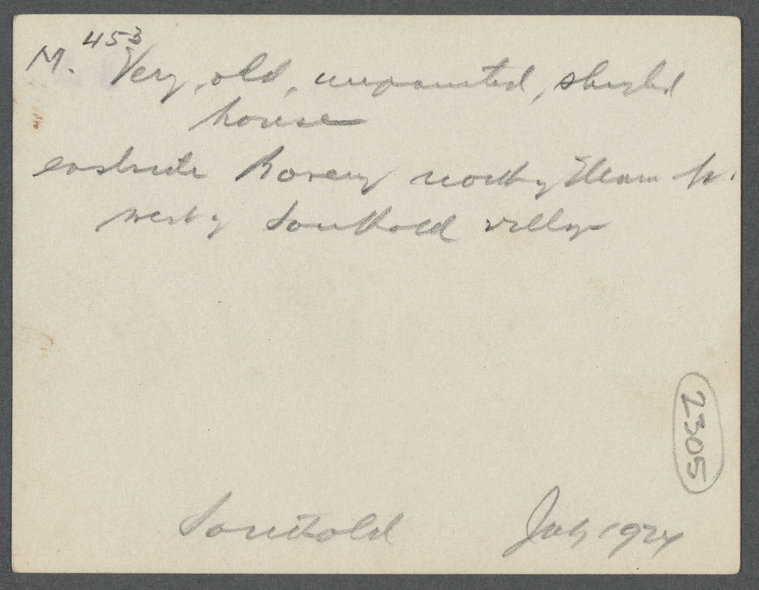 453
M. Very, old, unpainted, shingled
house
eastside Bowery north of
west of Southold village
2305
Southold July 1924